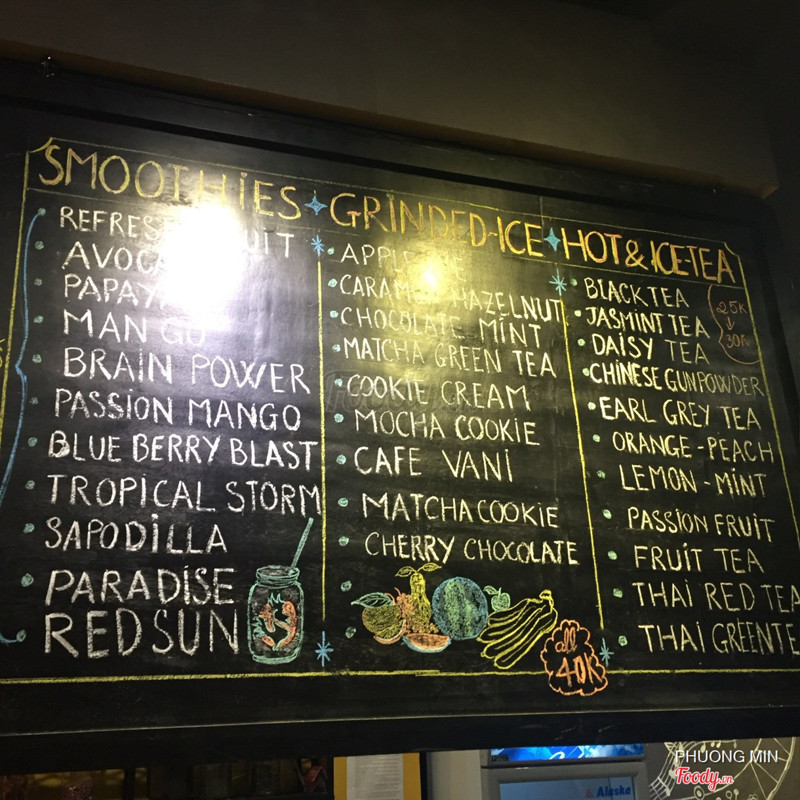 SMOOTHIES
AVOCA
PAPAYA
MANGO
BRAIN POWER
PASSION MANGO
BLUE BERRY BLAST
TROPICAL STORM
SAPODILLA
PARADISE
REDSUN
GRINDED-ICE
APPLE
HAZELNUT
CHOCOLATE MINT
MATCHA GREEN TEA
COOKIE CREAM
MOCHA COOKIE
CAFE VANI
MATCHA COOKIE
CHERRY CHOCOLATE
all
40K
HOT & ICETEA
BLACK TEA
JASMINT TEA
DAISY TEA
CHINESE GUNPOWDER
EARL GREY TEA
ORANGE - PEACH
LEMON - MINT
PASSION FRUIT
FRUIT TEA
THAI RED TEA
THAI GREENTE
25K
↓
30K
Alaska
PHUONG MIN
Foody.vn